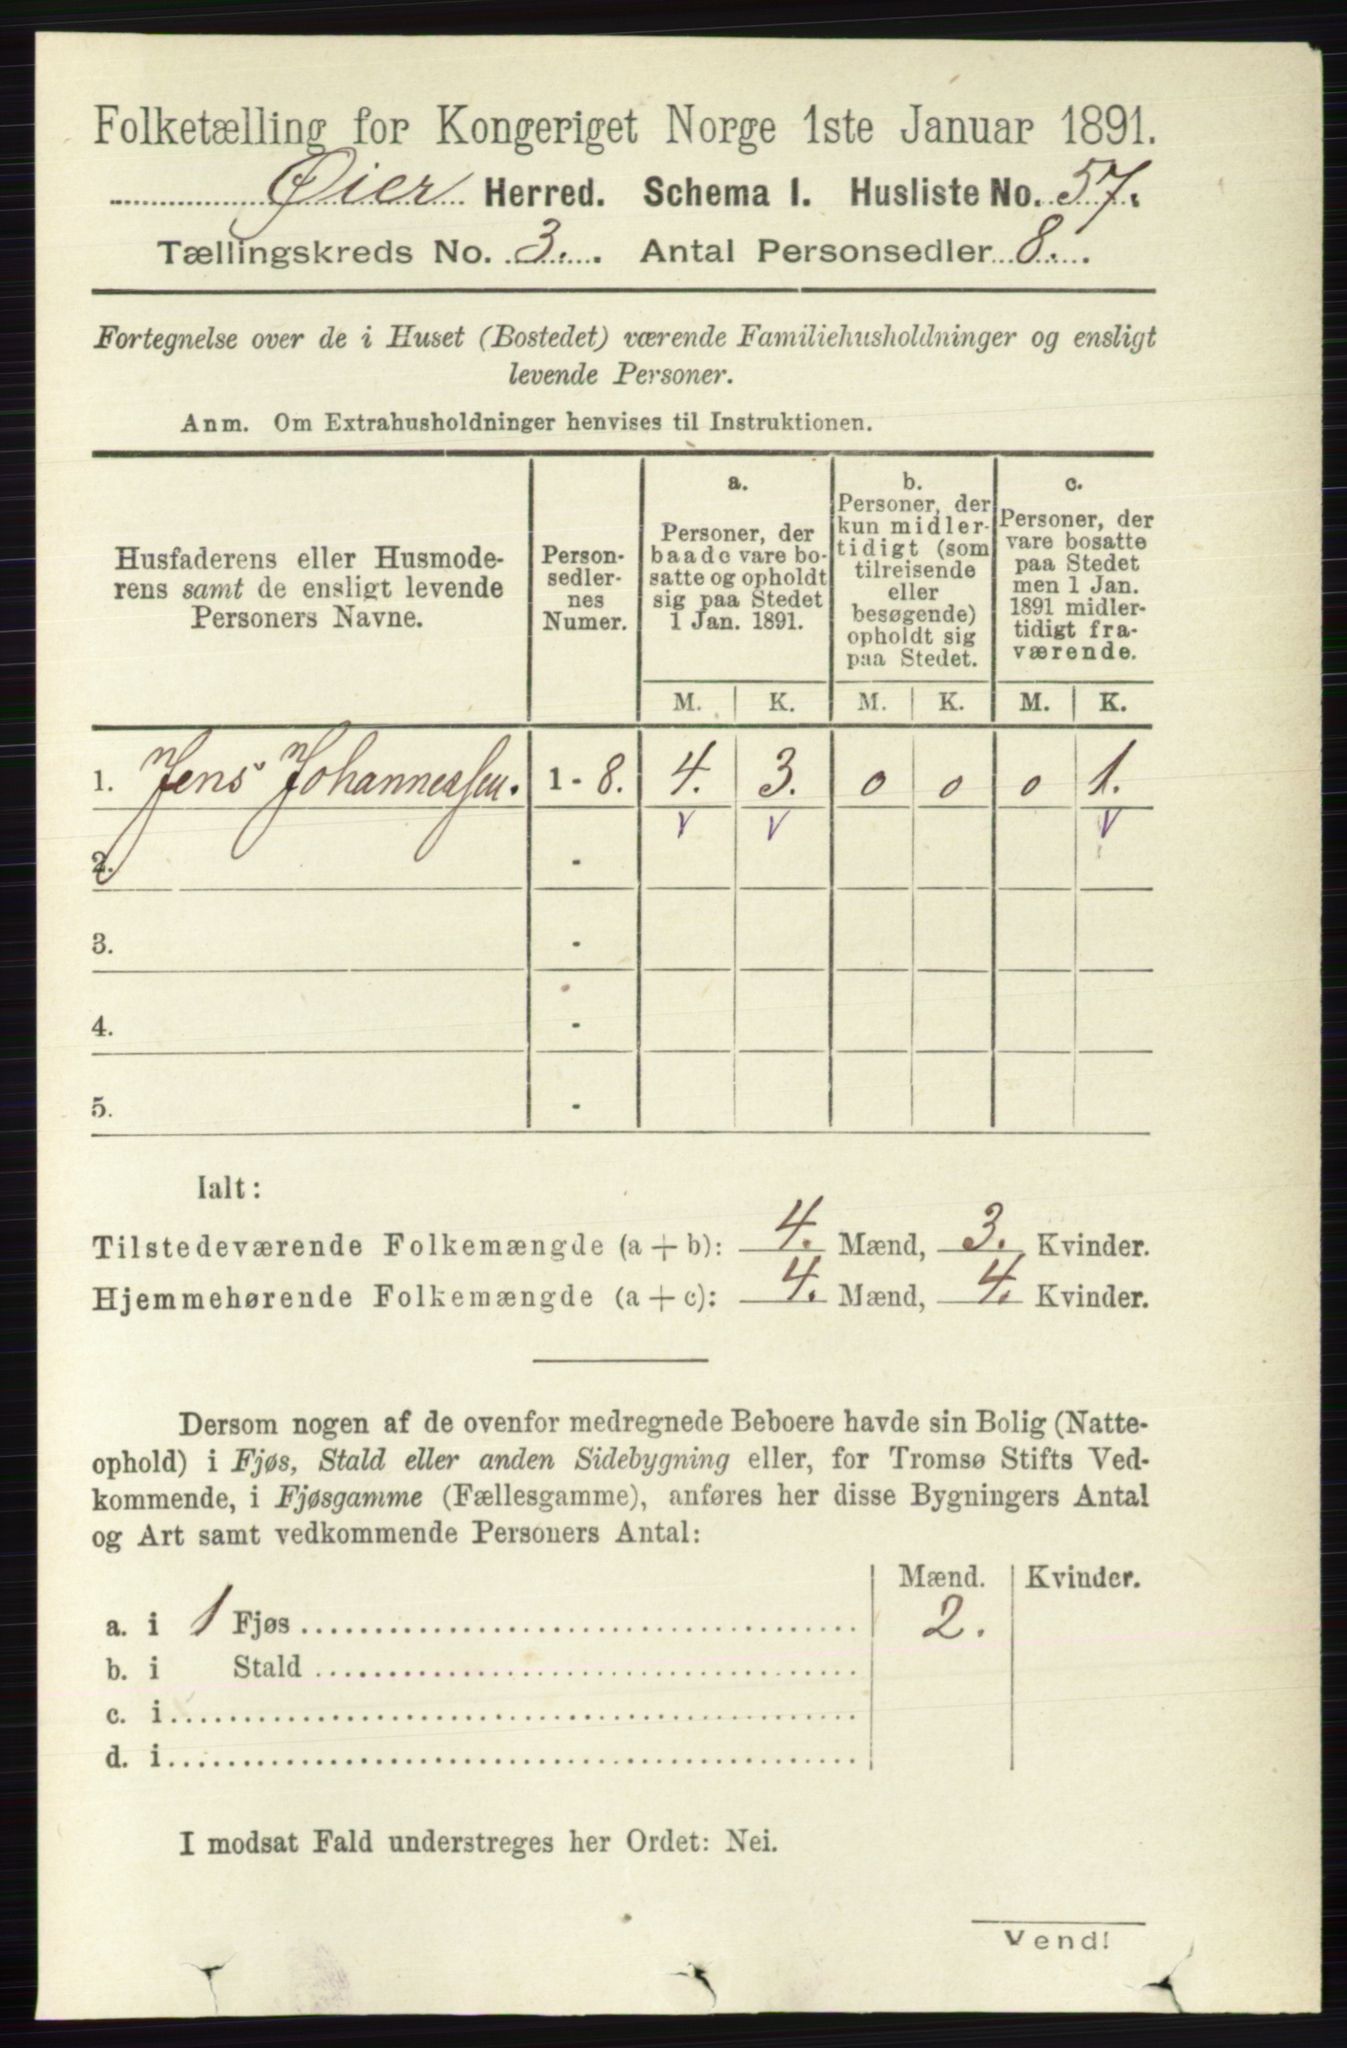 Folketælling for Kongeriget Norge 1ste Januar 1891.
Øier Herred. Schema I. Husliste No. 57.
Tællingskreds No. 3. Antal Personsedler 8.
Fortegnelse over de i Huset (Bostedet) værende Familiehusholdninger og ensligt
levende Personer.
Anm. Om Extrahusholdninger henvises til Instruktionen.
Husfaderens eller Husmode-
rens samt de ensligt levende
Personers Navne.
Person-
sedler-
nes
Numer.
a.
Personer, der
baade vare bo-
satte og opholdt
sig paa Stedet
1 Jan. 1891.
b.
Personer, der
kun midler-
tidigt (som
tilreisende
eller
besøgende)
opholdt sig
paa Stedet.
c.
Personer, der
vare bosatte
paa Stedet
men 1 Jan.
1891 midler-
tidigt fra-
værende.
M. K. M. K. M. K.
1. Jens Johannessen. 1 - 8. 4. 3. 0 0 0 1.
v v v
2. -
3. -
4. -
5. -
Ialt:
Tilstedeværende Folkemængde (a + b): 4. Mænd, 3. Kvinder.
Hjemmehørende Folkemængde (a + c): 4. Mænd, 4. Kvinder.
Dersom nogen af de ovenfor medregnede Beboere havde sin Bolig (Natte-
ophold) i Fjøs, Stald eller anden Sidebygning eller, for Tromsø Stifts Ved-
kommende, i Fjøsgamme (Fællesgamme), anføres her disse Bygningers Antal
og Art samt vedkommende Personers Antal:
Mænd. Kvinder.
a. i 1 Fjøs 2.
b. i Stald
c. i
d. i
I modsat Fald understreges her Ordet: Nei.
Vend!